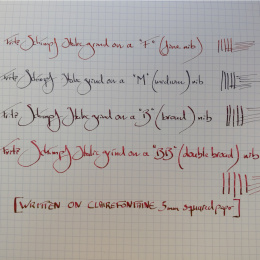 Fritz Schimpf Italic grind on a "F" (fine nib)
Fritz Schimpf Italic grind on a "M" (medium) nib
Fritz Schimpf Italic grind on a "B" (broad) nib
Fritz Schimpf Italic grind on a "BB" (double broad) nib
[WRITTEN ON CLAIREFONTAINE 5mm squared paper]